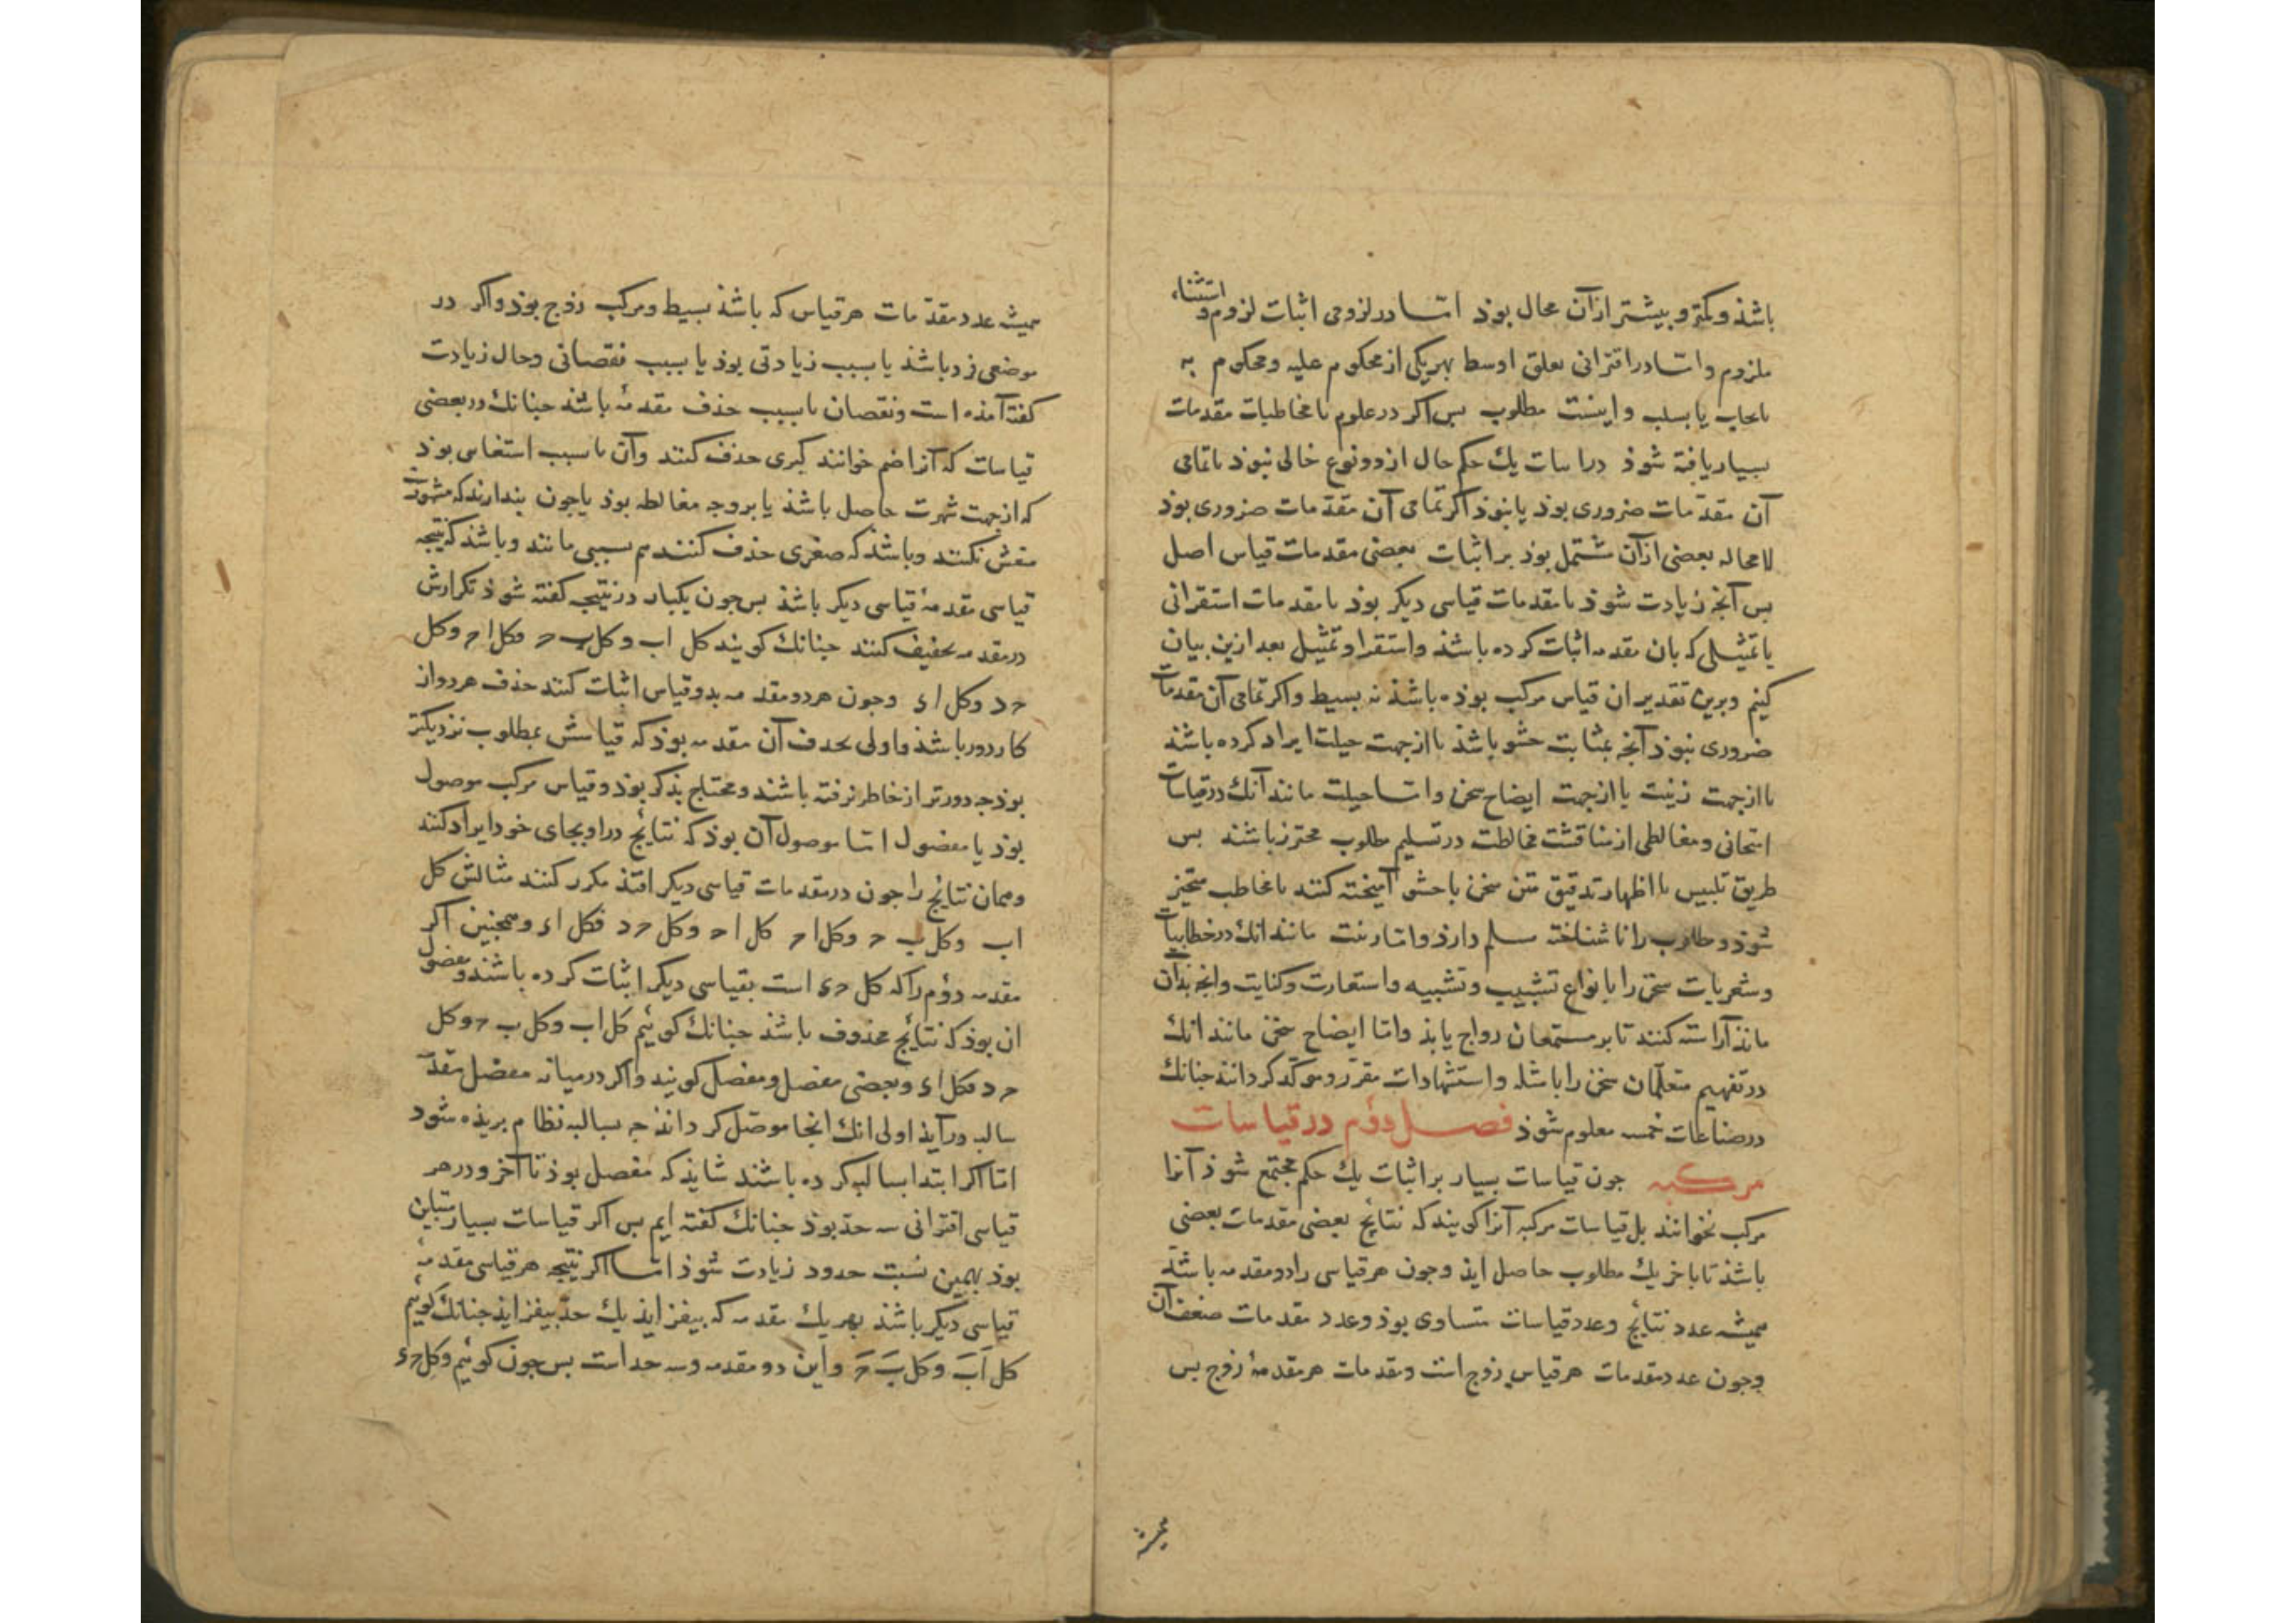 باشذ و کمتر و بیشتر از آن محال بوذ اما در لزومی اثبات لزوم و استثناء
ملزوم و اما در اقترانی تعلق اوسط بهریکی از محکوم علیه و محکوم به
بایجاب یا بسلب و اینست مطلوب بس اکر در علوم یا مخاطبات مقدمات
بسیار یافته شوذ در اثبات یك حکم حال از دو نوع خالی نبوذ یا تمامی
آن مقدمات ضروری بوذ یا نبوذ اکر تمامی آن مقدمات ضروری بوذ
لا محاله بعضی از آن مشتمل بوذ بر اثبات بعضی مقدمات قیاس اصل
بس آنجه زیادت شوذ یا مقدمات قیاسی دیکر بوذ یا مقدمات استقرائی
یا تمثیلی که بآن مقدمه اثبات کرده باشذ و استقرا و تمثیل بعد ازین بیان
کنیم و برین تقدیر ان قیاس مرکب بوذه باشذ نه بسیط و اکر تمامی آن مقدمات
ضروری نبوذ آنجه بمثابت حشو باشذ یا از جهت حیلت ایراد کرده باشند
یا از جهت زینت یا از جهت ایضاح سخن و اما حیلت مانند آنك در قیاسات
امتحانی و مغالطی از مناقشت مخالطت در تسلیم مطلوب محترز باشند بس
طریق تلبیس یا اظهار تدقیق متن سخن با حشو آمیخته کنند تا مخاطب متحیر
شوذ و مطلوب را ناشناخته مسلم دارذ و اما زینت مانند انك در خطابیات
و شعریات سخن را بانواع تشبیب و تشبیه و استعارت و کنایت و انجه بذان
ماند آراسته کنند تا بر مستمعان رواج یابذ و اما ایضاح سخن مانند انك
در تفهیم متعلمان سخن را بامثله و استشهادات مقرر و موکد کردانند جنانك
در صناعات خمسه معلوم شوذ فصل دوم در قیاسات
مرکبه جون قیاسات بسیار بر اثبات یك حکم مجتمع شوذ آنرا
مرکب نخوانند بل قیاسات مرکبه آنرا کویند که نتایج بعضی مقدمات بعضی
باشذ تا باخر یك مطلوب حاصل ایذ و جون هر قیاسی را دو مقدمه باشذ
همیشه عدد نتایج و عدد قیاسات متساوی بوذ و عدد مقدمات ضعف آن
و جون عدد مقدمات هر قیاسی زوج است و مقدمات هر مقدمهٔ زوج بس
همیشه
همیشه عدد مقدمات هر قیاس که باشذ بسیط و مرکب زوج بوذ و اکر در
موضعی فرد باشذ یا بسبب زیادتی بوذ یا بسبب نقصانی و حال زیادت
کفته آمذه است و نقصان یا بسبب حذف مقدمهٔ باشذ جنانك در بعضی
قیاسات که آنرا ضمیر خوانند کبری حذف کنند و آن یا بسبب استغنایی بوذ
که از جهت شهرت حاصل باشذ یا بر وجه مغالطه بوذ یا جون بندارند که مشهورست
نکنند و باشذ که صغری حذف کنند هم بسببی مانند و باشذ که نتیجه
قیاسی مقدمهٔ قیاسی دیکر باشذ بس جون یکبار در نتیجه کفته شوذ تکرارش
در مقدمه تخفیف کنند جنانك کویند کل اب و کل ب ح فکل ا ح و کل
ح د و کل ا د و جون هر دو مقدمه بدو قیاس اثبات کنند حذف هر دو از
کار دور باشذ و اولی بحذف آن مقدمه بوذ که قیاسش بمطلوب نزدیکتر
بوذ جه دورتر از خاطر نرفته باشند و محتاج بذکر بوذ و قیاس مرکب موصول
بوذ یا مفصول اما موصول آن بوذ که نتایج در او بجای خود ایراد کنند
و همان نتایج را جون در مقدمات قیاسی دیکر افتذ مکرر کنند مثالش کل
اب و کل ب ح و کل ا ح کل ا ح و کل ح د فکل ا د و همجنین اکر
مقدمه دوم را که کل ح د است بقیاسی دیکر اثبات کرده باشند و مفصول
ان بوذ که نتایج محذوف باشذ جنانك کوئیم کل اب و کل ب ح و کل
ح د فکل ا د و بعضی مفصل و مفصل کویند و اکر در میانه مفصل مقدمهٔ
سالبه درآیذ اولی انك انجا موصل کردانند جه بسالبه نظام بریذه شود
اما اکر ابتدا بسالبه کرده باشند شایذ که مفصل بوذ تا آخر و در هر
قیاسی اقترانی سه حد بوذ جنانك کفته ایم بس اکر قیاسات بسیار متباین
بوذ بهمین نسبت حدود زیادت شوذ اما اکر نتیجه هر قیاسی مقدمهٔ
قیاسی دیکر باشذ بهر یك مقدمه که بیفزایذ یك حد بیفزایذ جنانك کوئیم
کل اَبَ و کل بَ حَ و این دو مقدمه و سه حد است بس جون کوئیم و کل ح د